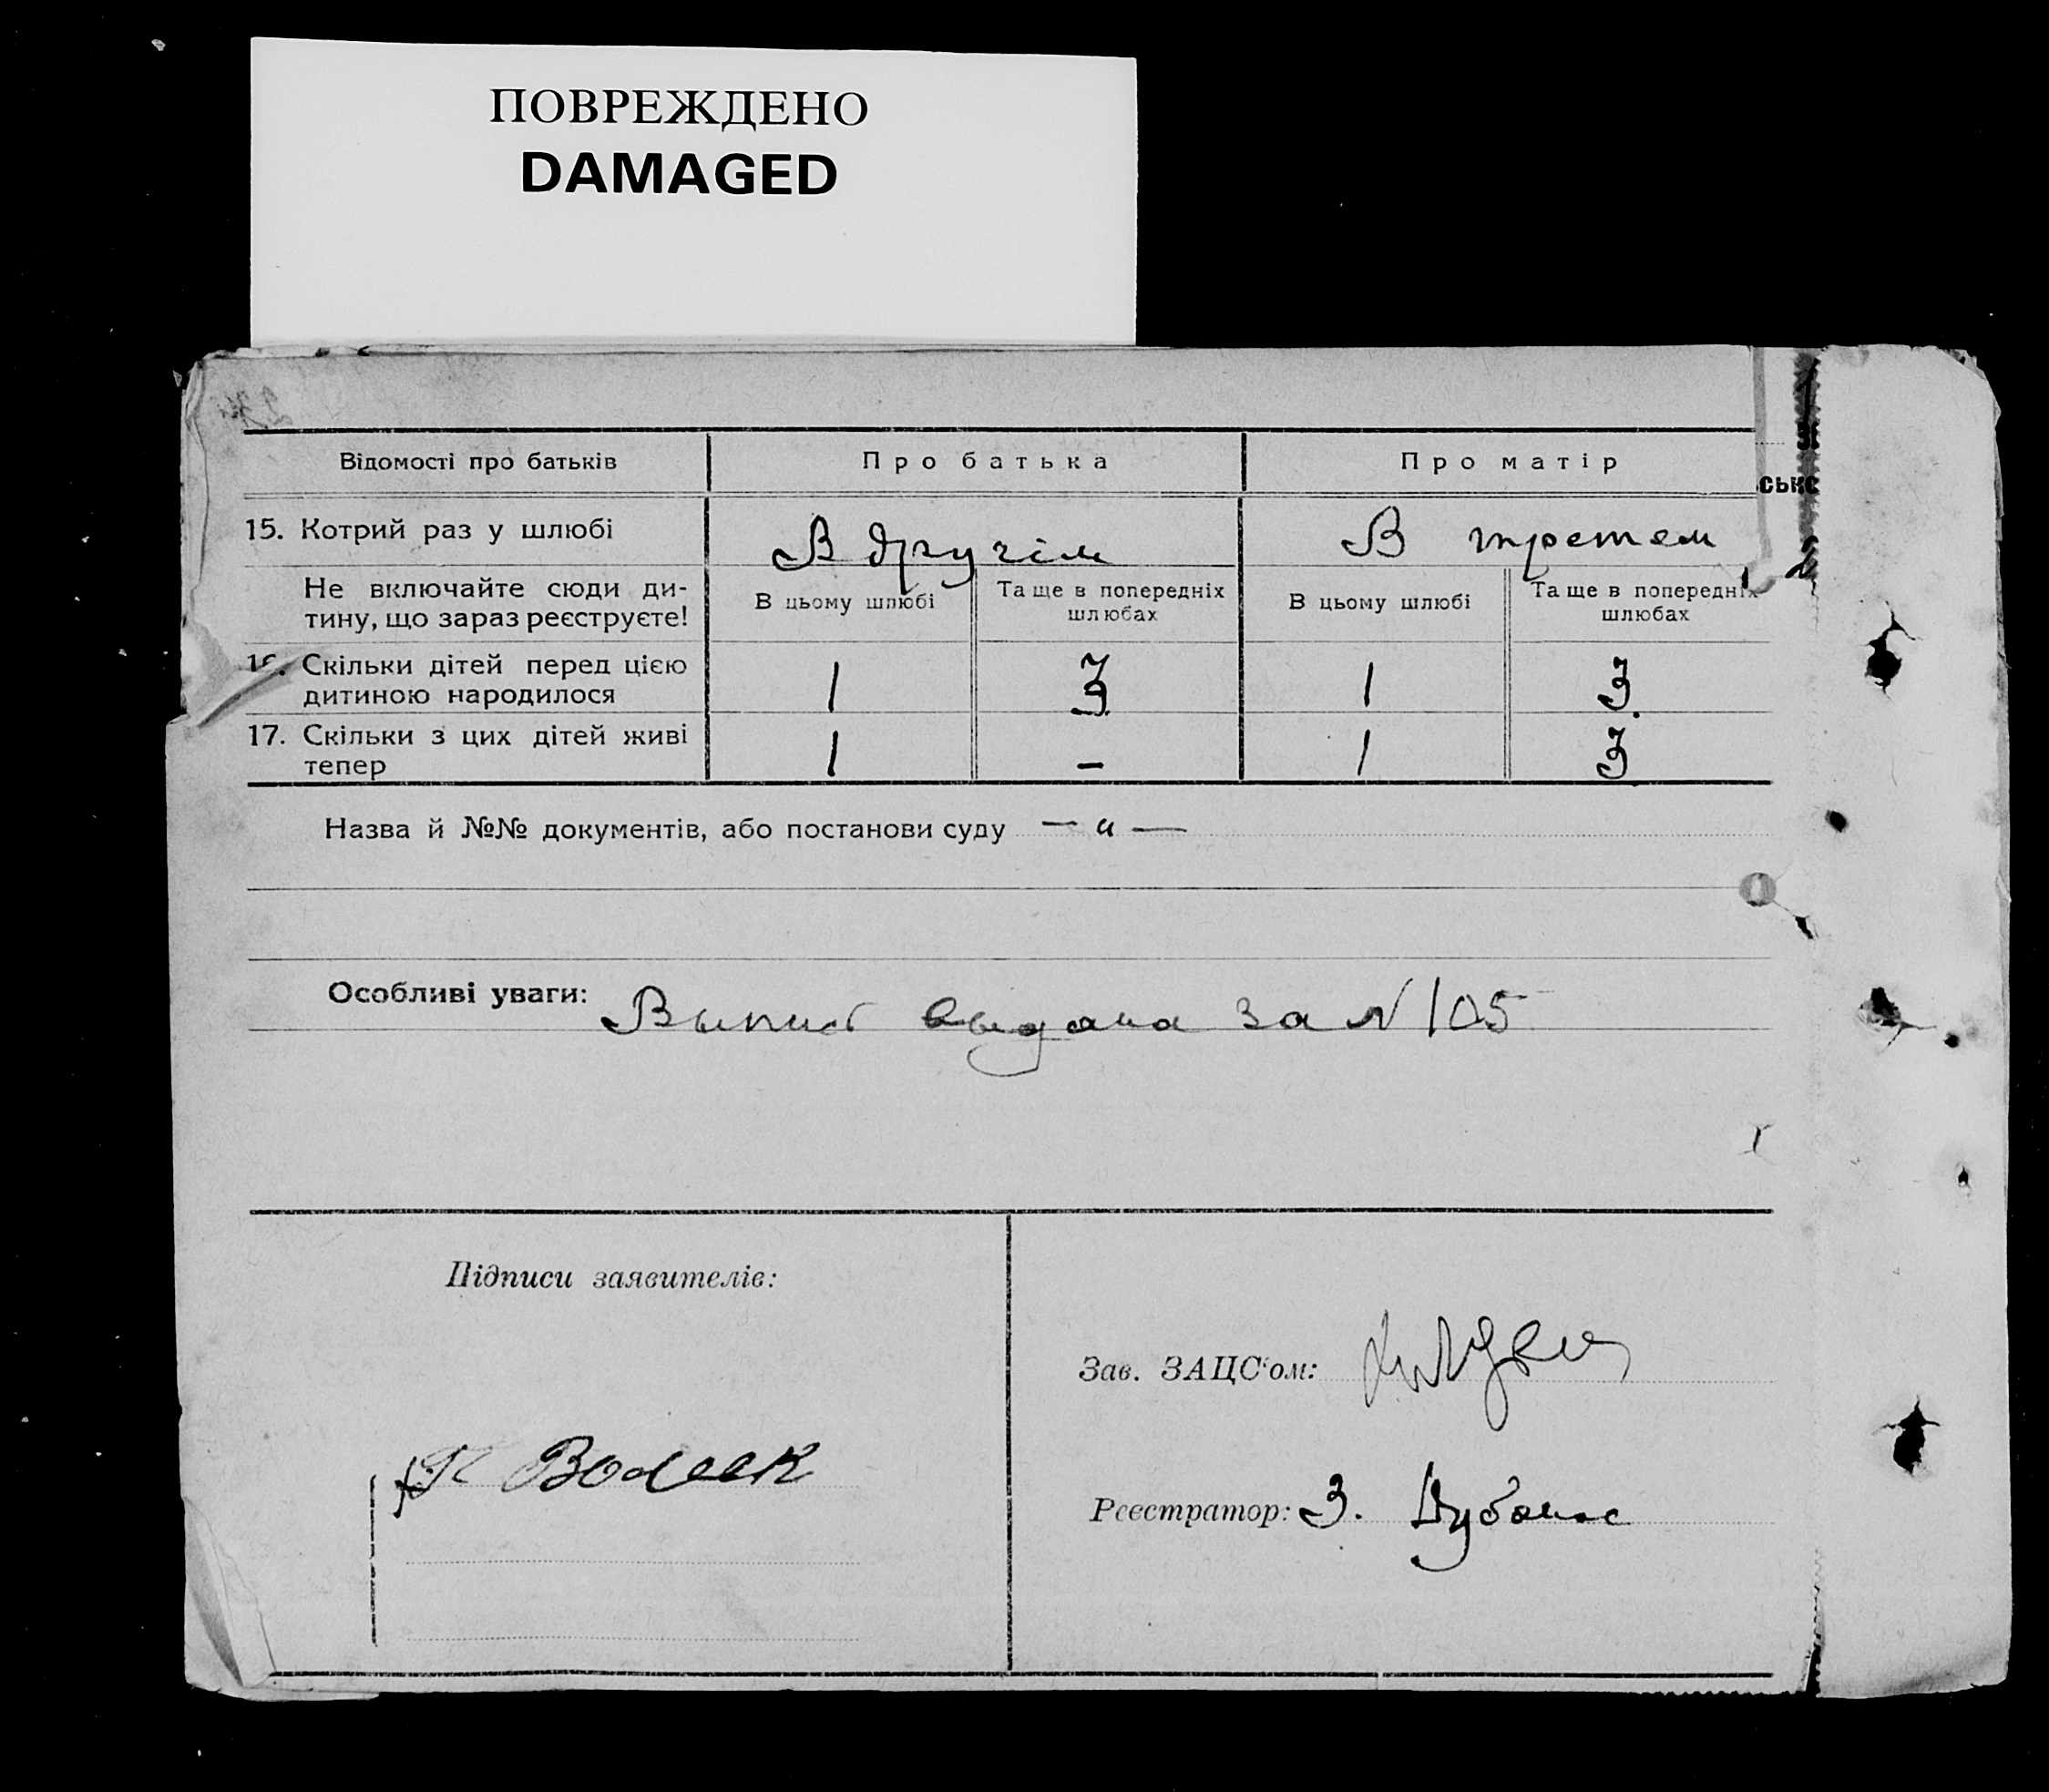 ПОВРЕЖДЕНО
DAMAGED
Відомості про батьків
Про батька
Про матір
ськс
15. Котрий раз у шлюбі
В другім
В третем
Не включайте сюди ди-
тину, що зараз реєструєте!
В цьому шлюбі
Та ще в попередніх
шлюбах
В цьому шлюбі
Та ще в попередніх
шлюбах
16. Скільки дітей перед цією
дитиною народилося
1
3
1
3
17. Скільки з цих дітей живі
тепер
1
–
1
3
Назва й №№ документів, або постанови суду — " —
Особливі уваги: Выпис выдана за N 105
Підписи заявителів:
Зав. ЗАЦС'ом:
Реєстратор: З.